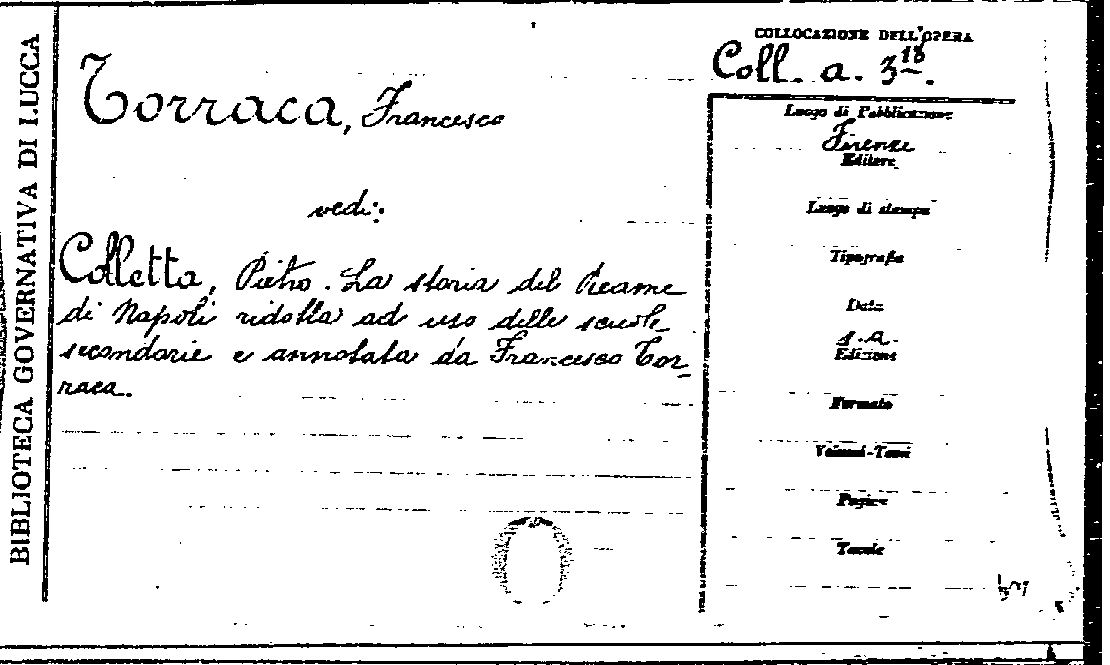 BIBLIOTECA GOVERNATIVA DI LUCCA
COLLOCAZIONE DELL'OPERA
Coll. a. 3¹⁸.
Torraca, Francesco
vedi:
Colletta, Pietro. La storia del Reame
di Napoli ridotta ad uso delle scuole
secondarie e annotata da Francesco Tor-
raca.
Luogo di Pubblicazione
Firenze
Editore
Luogo di stampa
Tipografia
Data
s.a.
Edizione
Formato
Volumi-Tomi
Pagine
Tavole